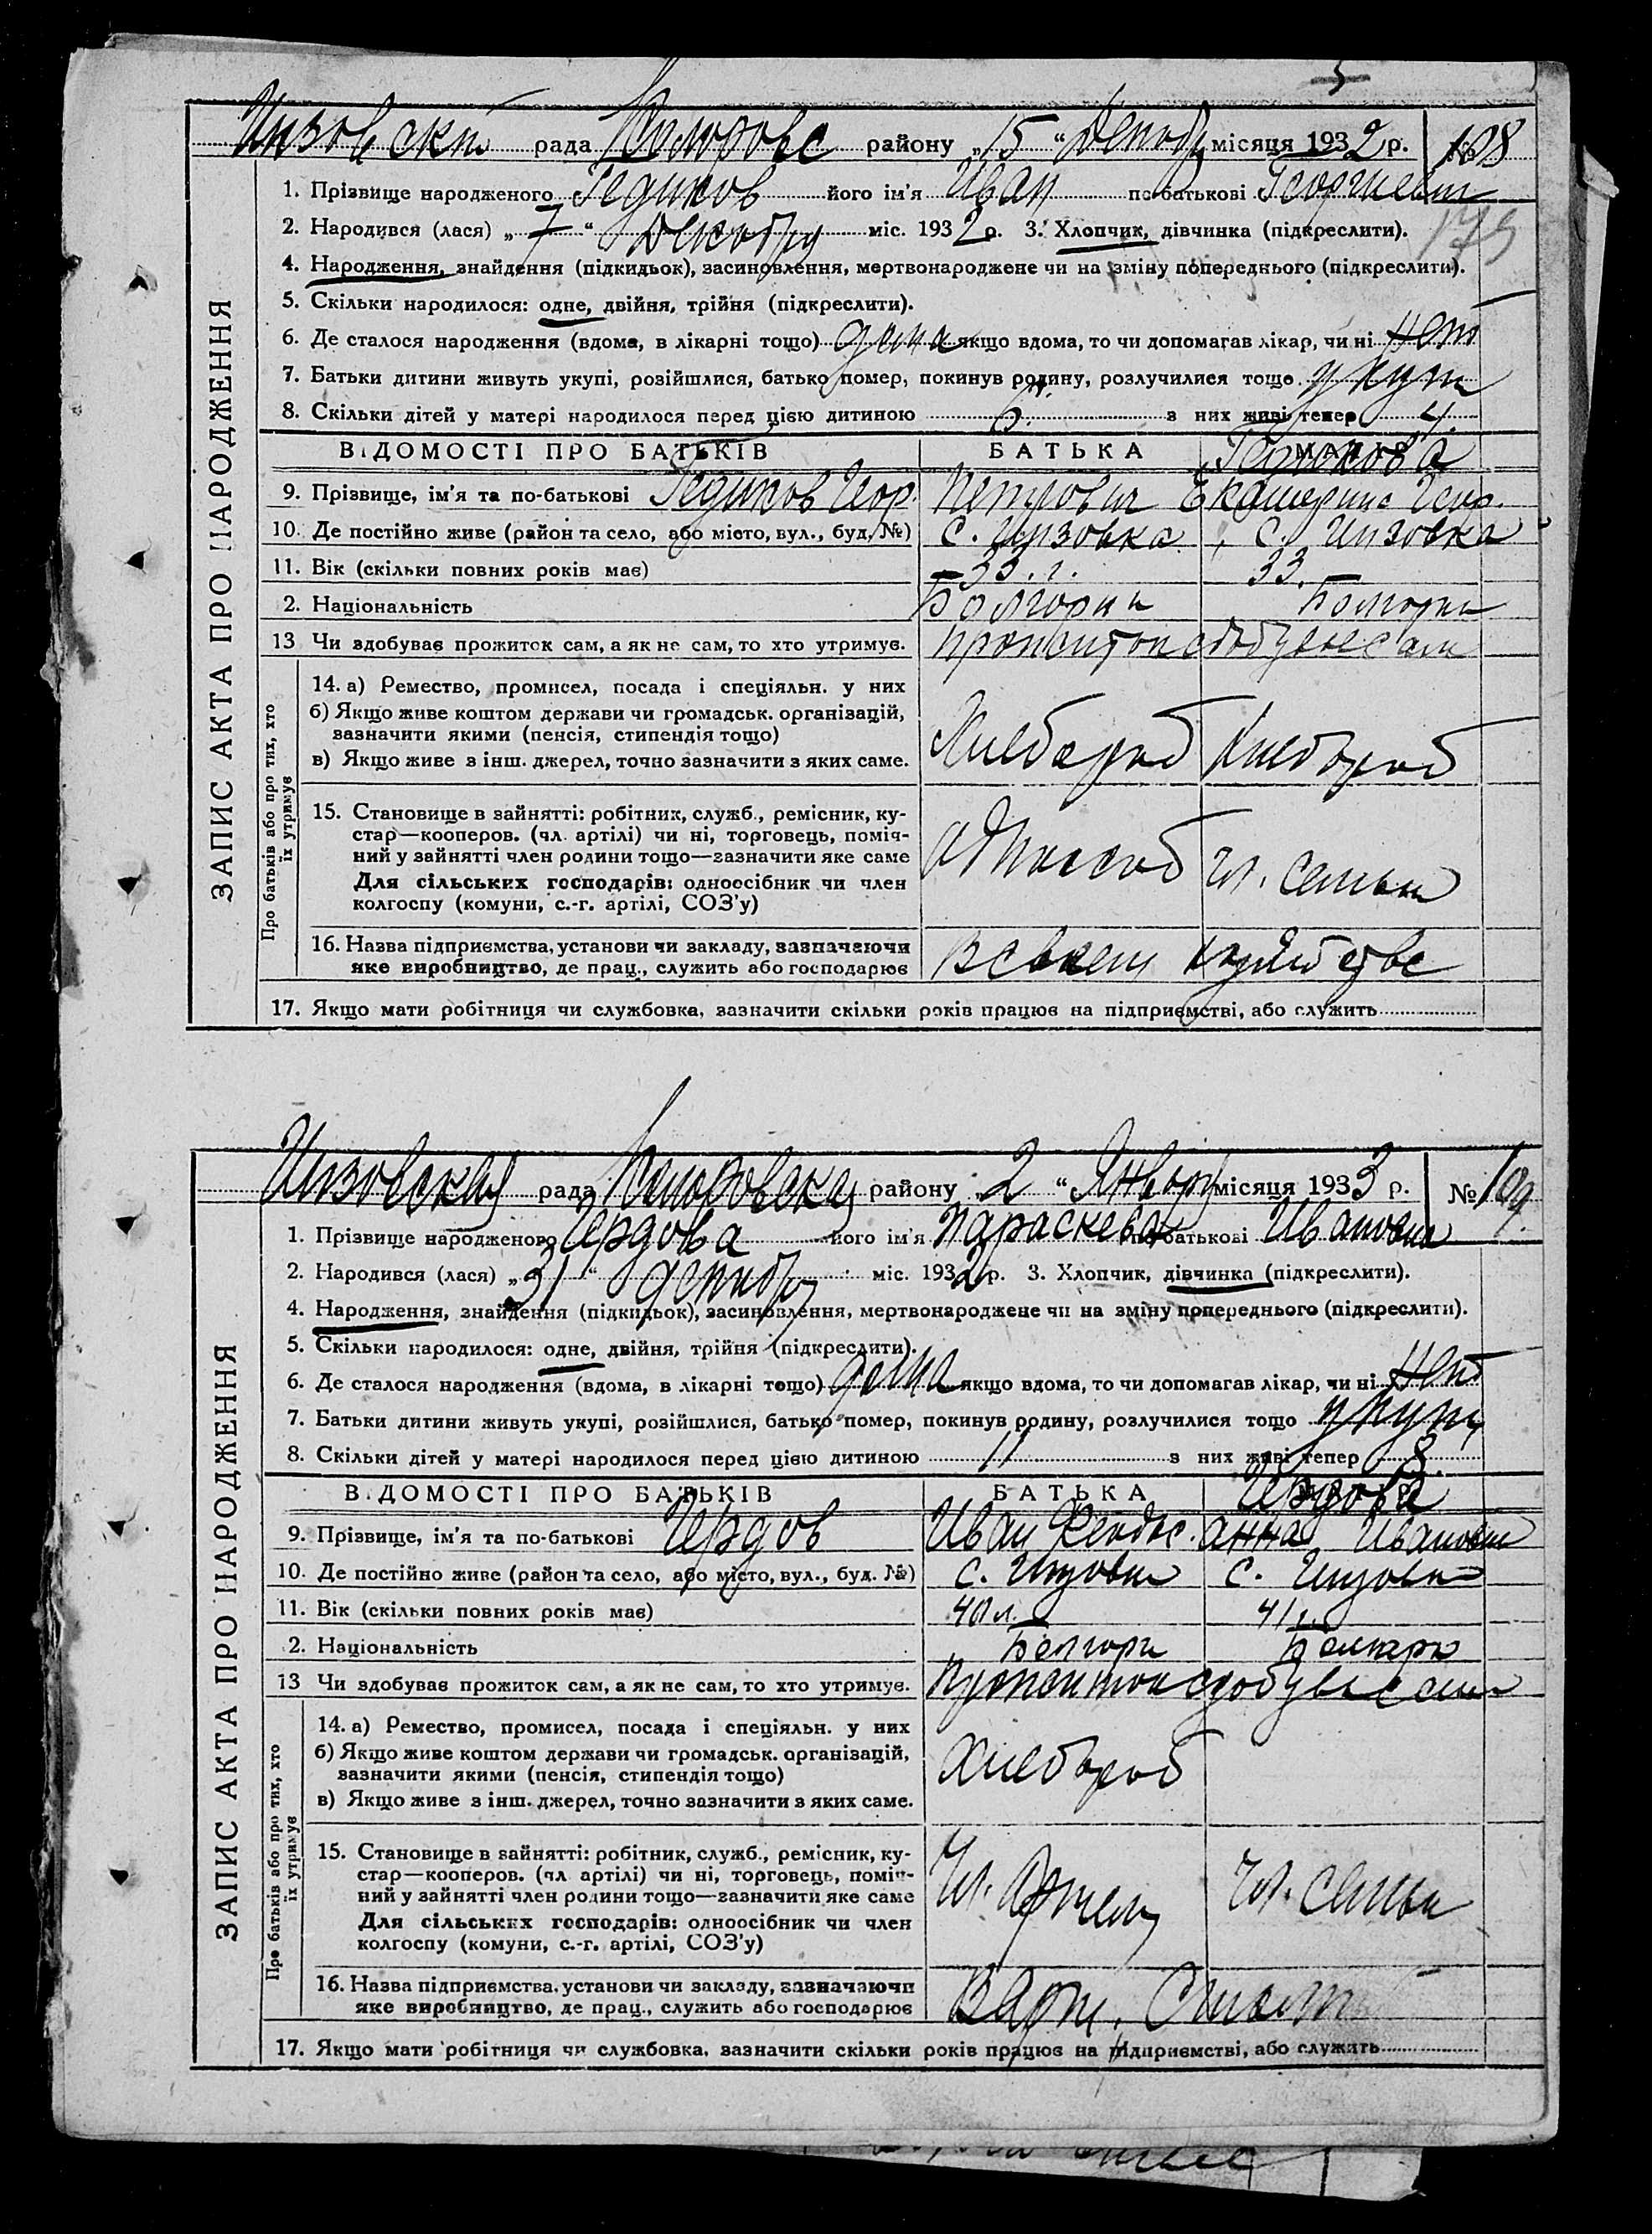 5
Инзовск рада району „15“ Декабр місяця 1932 р. № 108
1. Прізвище народженого Гедиков його ім'я Иван по батькові Георгиевич
175
2. Народився (лася) „7“ Декабря міс. 1932 р. 3. Хлопчик, дівчинка (підкреслити).
4. Народження, знайдення (підкидьок), засиновлення, мертвонароджене чи на зміну попереднього (підкреслити).
5. Скільки народилося: одне, двійня, трійня (підкреслити).
6. Де сталося народження (вдома, в лікарні тощо) дома якщо вдома, то чи допомагав лікар, чи ні нет
7. Батьки дитини живуть укупі, розійшлися, батько помер, покинув родину, розлучилися тощо укупі
8. Скільки дітей у матері народилося перед цією дитиною 6 з них живі тепер 4.
ЗАПИС АКТА ПРО НАРОДЖЕННЯ
ВІДОМОСТІ ПРО БАТЬКІВ БАТЬКА МАТЕРІ Гедикова
9. Прізвище, ім'я та по-батькові Гедиков Геор. Петрович Екатерина Геор.
10. Де постійно живе (район та село, або місто, вул., буд. №) с. Инзовка с. Инзовка
11. Вік (скільки повних років має) 33. г. 33.
2. Національність Болгори Болгори
13 Чи здобував прожиток сам, а як не сам, то хто утримує. прожиток здобував сам
Про батьків або про тих, хто їх утримує
14. а) Ремество, промисел, посада і спеціяльн. у них
б) Якщо живе коштом держави чи громадськ. організацій,
зазначити якими (пенсія, стипендія тощо)
в) Якщо живе з інш. джерел, точно зазначити з яких саме.
Хлебороб Хлебороб
15. Становище в зайнятті: робітник, служб., ремісник, ку-
стар—кооперов. (чл. артілі) чи ні, торговець, поміч-
ний у зайнятті член родини тощо—зазначити яке саме
Для сільських господарів: одноосібник чи член
колгоспу (комуни, с.-г. артілі, СОЗ'у)
чл. семьи
16. Назва підприємства, установи чи закладу, зазначаючи
яке виробництво, де прац., служить або господарює
В своем хозяйстве
17. Якщо мати робітниця чи службовка, зазначити скільки років працює на підприємстві, або служить
Инзовская рада району „2“ Январь місяця 1933 р. № 109.
1. Прізвище народженого Чердова його ім'я Параскева по батькові Ивановна
2. Народився (лася) „31“ декабр міс. 1932 р. 3. Хлопчик, дівчинка (підкреслити).
4. Народження, знайдення (підкидьок), засиновлення, мертвонароджене чи на зміну попереднього (підкреслити).
5. Скільки народилося: одне, двійня, трійня (підкреслити).
6. Де сталося народження (вдома, в лікарні тощо) дома якщо вдома, то чи допомагав лікар, чи ні нет
7. Батьки дитини живуть укупі, розійшлися, батько помер, покинув родину, розлучилися тощо укупі
8. Скільки дітей у матері народилося перед цією дитиною 11 з них живі тепер 8.
ЗАПИС АКТА ПРО НАРОДЖЕННЯ
ВІДОМОСТІ ПРО БАТЬКІВ БАТЬКА Чердова
9. Прізвище, ім'я та по-батькові Чердов Иван Анна Ивановн
10. Де постійно живе (район та село, або місто, вул., буд. №) с. Инзовка с. Инзовка
11. Вік (скільки повних років має) 40 л. 41 г.
2. Національність Болгори Болгари
13 Чи здобував прожиток сам, а як не сам, то хто утримує. Прожиток здобував сам
Про батьків або про тих, хто їх утримує
14. а) Ремество, промисел, посада і спеціяльн. у них
б) Якщо живе коштом держави чи громадськ. організацій,
зазначити якими (пенсія, стипендія тощо)
в) Якщо живе з інш. джерел, точно зазначити з яких саме.
Хлебороб
15. Становище в зайнятті: робітник, служб., ремісник, ку-
стар—кооперов. (чл. артілі) чи ні, торговець, поміч-
ний у зайнятті член родини тощо—зазначити яке саме
Для сільських господарів: одноосібник чи член
колгоспу (комуни, с.-г. артілі, СОЗ'у)
Чл. Артели чл. семьи
16. Назва підприємства, установи чи закладу, зазначаючи
яке виробництво, де прац., служить або господарює
В арт.
17. Якщо мати робітниця чи службовка, зазначити скільки років працює на підприємстві, або служить